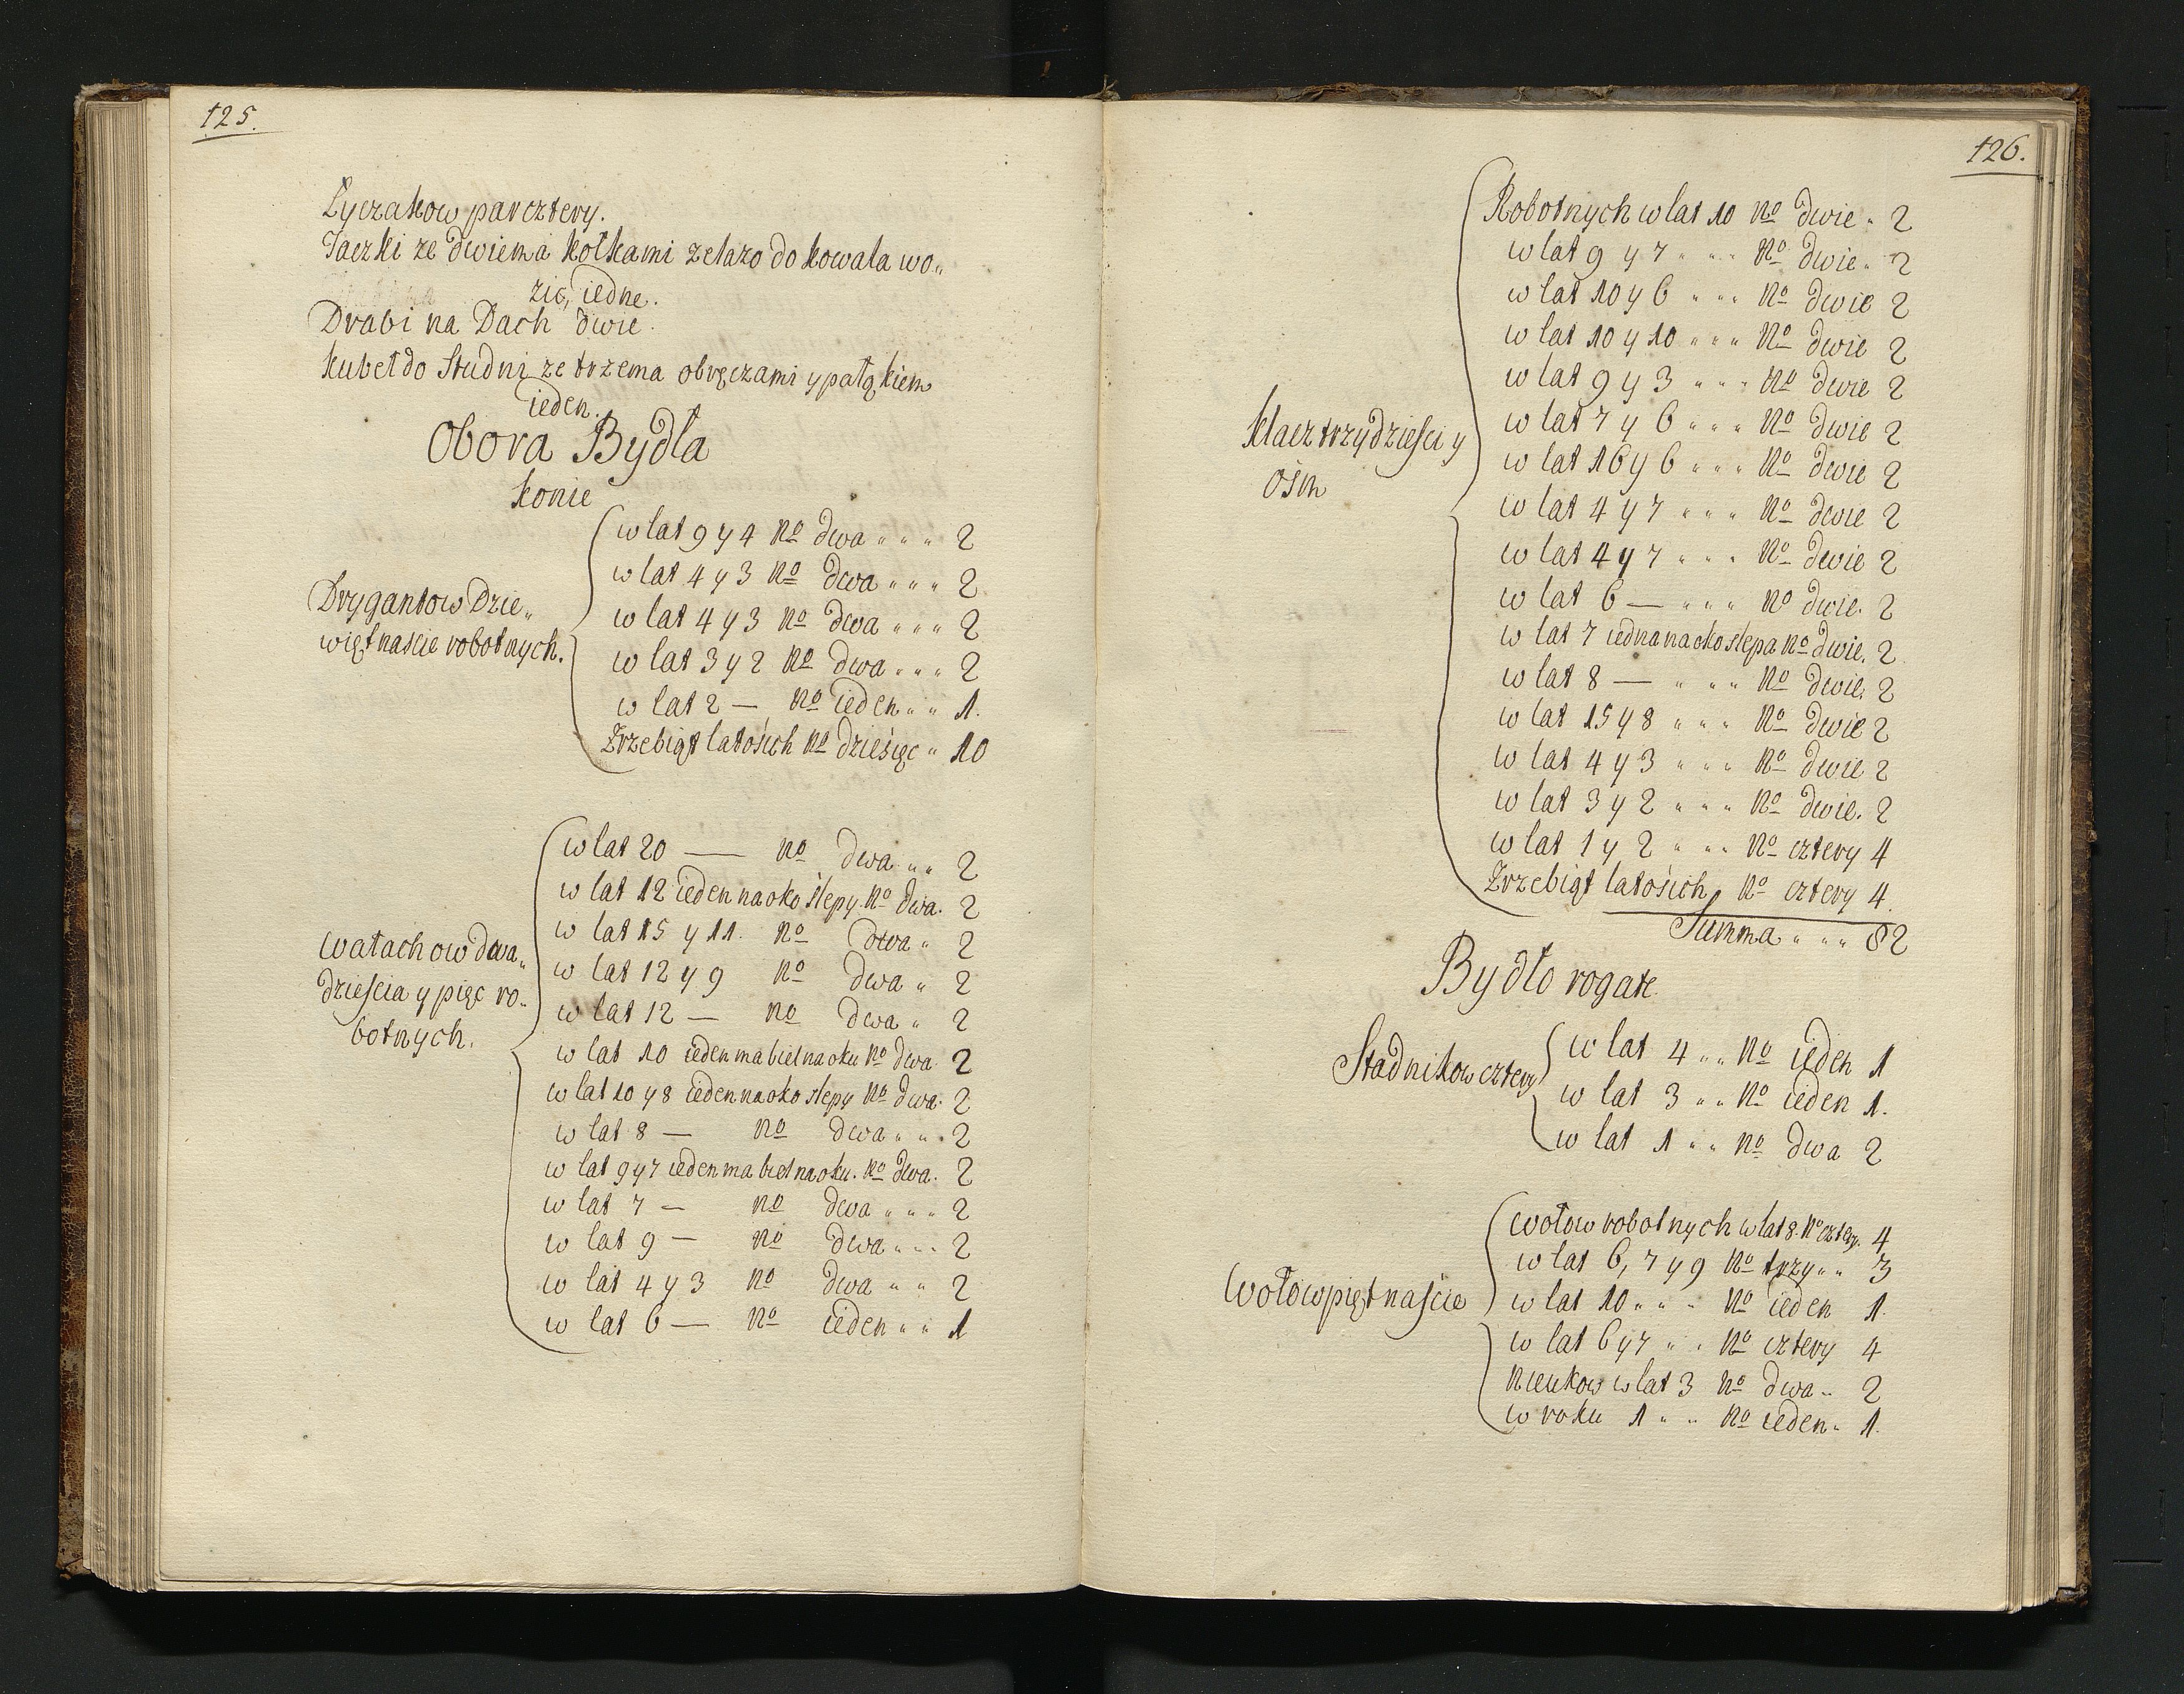 125.
Łyczakow par cztery.
Taczki ze dwiema kołkami zelazo do kowala wo„
zić, iedne.
Drabi na Dach dwie.
Kubeł do Studni ze trzema obręczami y pałąkiem
ieden.
Obora Bydła
konie
w lat 9 y 4 No dwa „ „ „ 2
w lat 4 y 3 No dwa „ „ „ 2
Drygantow Dzie„
w lat 4 y 3 No dwa „ „ „ 2
więtnascie robotnych.
w lat 3 y 2 No dwa „ „ „ 2
w lat 2 — No ieden „ „ 1.
Zrzebiąt latośich No dzieśięc „ 10
w lat 20 — No dwa „ „ 2
w lat 12 ieden na oko ślepy No dwa. 2
w lat 15 y 11. No dwa „ 2
wałachow dwa„
w lat 12 y 9 No dwa „ 2
dzieścia y pięc ro„
w lat 12 — No dwa „ 2
botnych.
w lat 10 ieden ma biel na oku No dwa 2
w lat 10 y 8 ieden na oko slepy No dwa. 2
w lat 8 — No dwa „ „ 2
w lat 9 y 7 ieden ma biel na oku. No dwa. 2
w lat 7 — No dwa „ „ „ 2
w lat 9 — No dwa „ „ „ 2
w lat 4 y 3 No dwa „ „ 2
w lat 6 — No ieden „ „ 1
126.
Robotnych w lat 10 No dwie „ 2
w lat 9 y 7 „ „ „ No dwie „ 2
w lat 10 y 6 „ „ „ No dwie 2
w lat 10 y 10 „ „ „ No dwie 2
w lat 9 y 3 „ „ „ No dwie 2
klacz trzydzieści y
w lat 7 y 6 „ „ „ No dwie 2
w lat 16 y 6 „ „ „ No dwie 2
ośm
w lat 4 y 7 „ „ „ No dwie 2
w lat 4 y 7 „ „ „ No dwie 2
w lat 6 — „ „ „ No dwie. 2
w lat 7 iedna na oko slepa No dwie. 2
w lat 8 — „ „ „ No dwie, 2
w lat 15 y 8 „ „ „ No dwie 2
w lat 4 y 3 „ „ „ No dwie 2
w lat 3 y 2 „ „ „ No dwie. 2
w lat 1 y 2 „ „ „ No cztery 4
Zrzebiąt latośich, No cztery 4.
Summa „ „ „ 82
Bydło rogate
w lat 4 „ „ No ieden 1
Stadnikow cztery
w lat 3 „ „ No ieden 1.
w lat 1 „ „ No dwa 2
wołow robotnych w lat 8. No cztery. 4
w lat 6, 7 y 9 No trzy „ „ 3
Wołow piętnaście
w lat 10 „ „ „ No ieden 1.
w lat 6 y 7 „ „ No cztery 4
w lat 3 No dwa „ 2
w roku 1 „ „ No ieden „ 1.